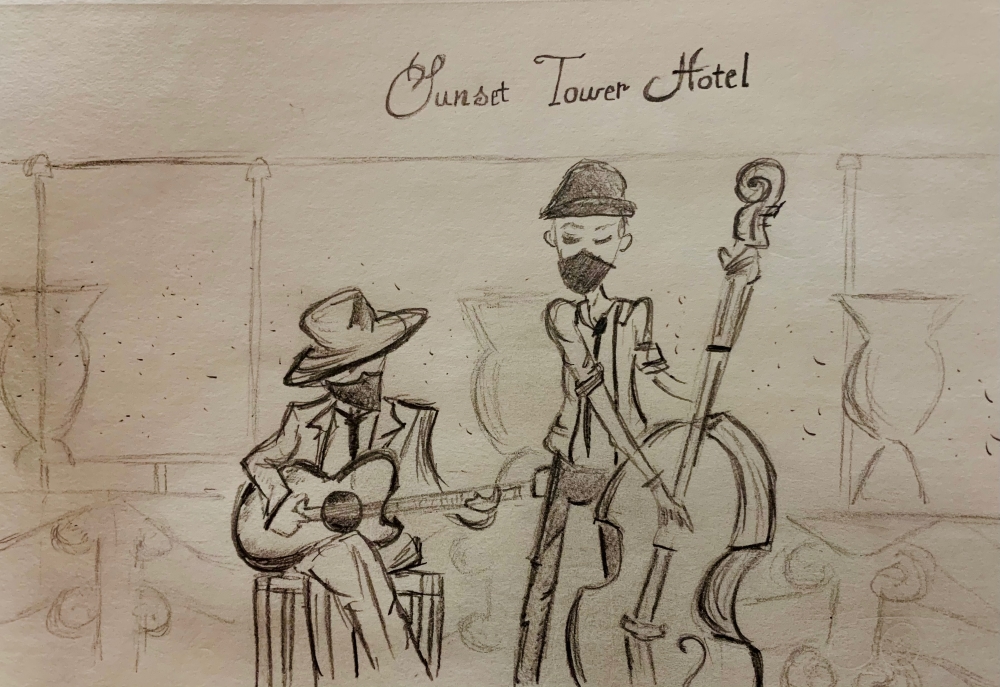 Sunset Tower Hotel